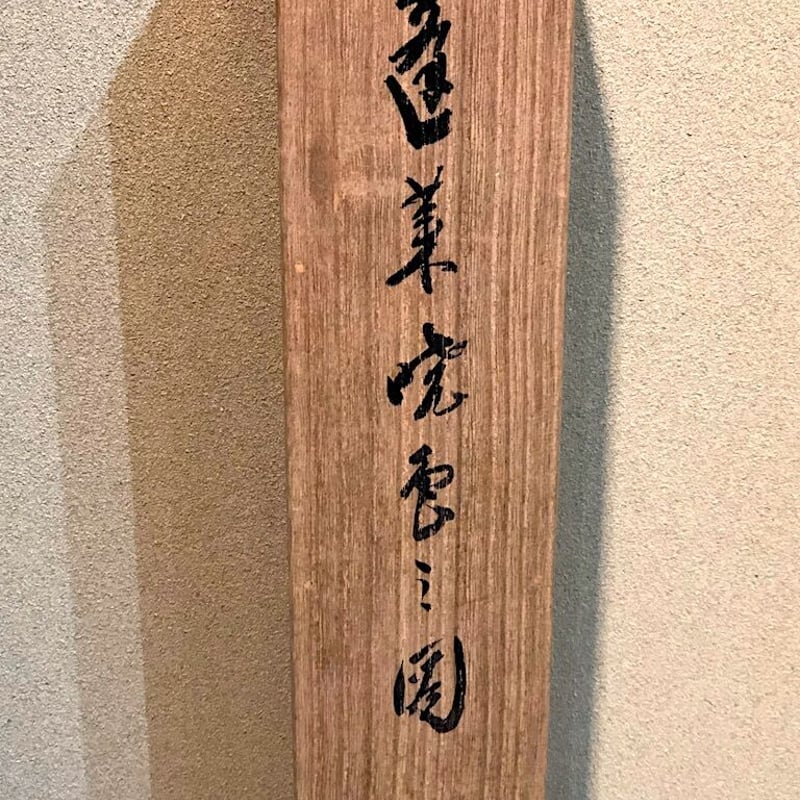 蓬莱暁雲之図